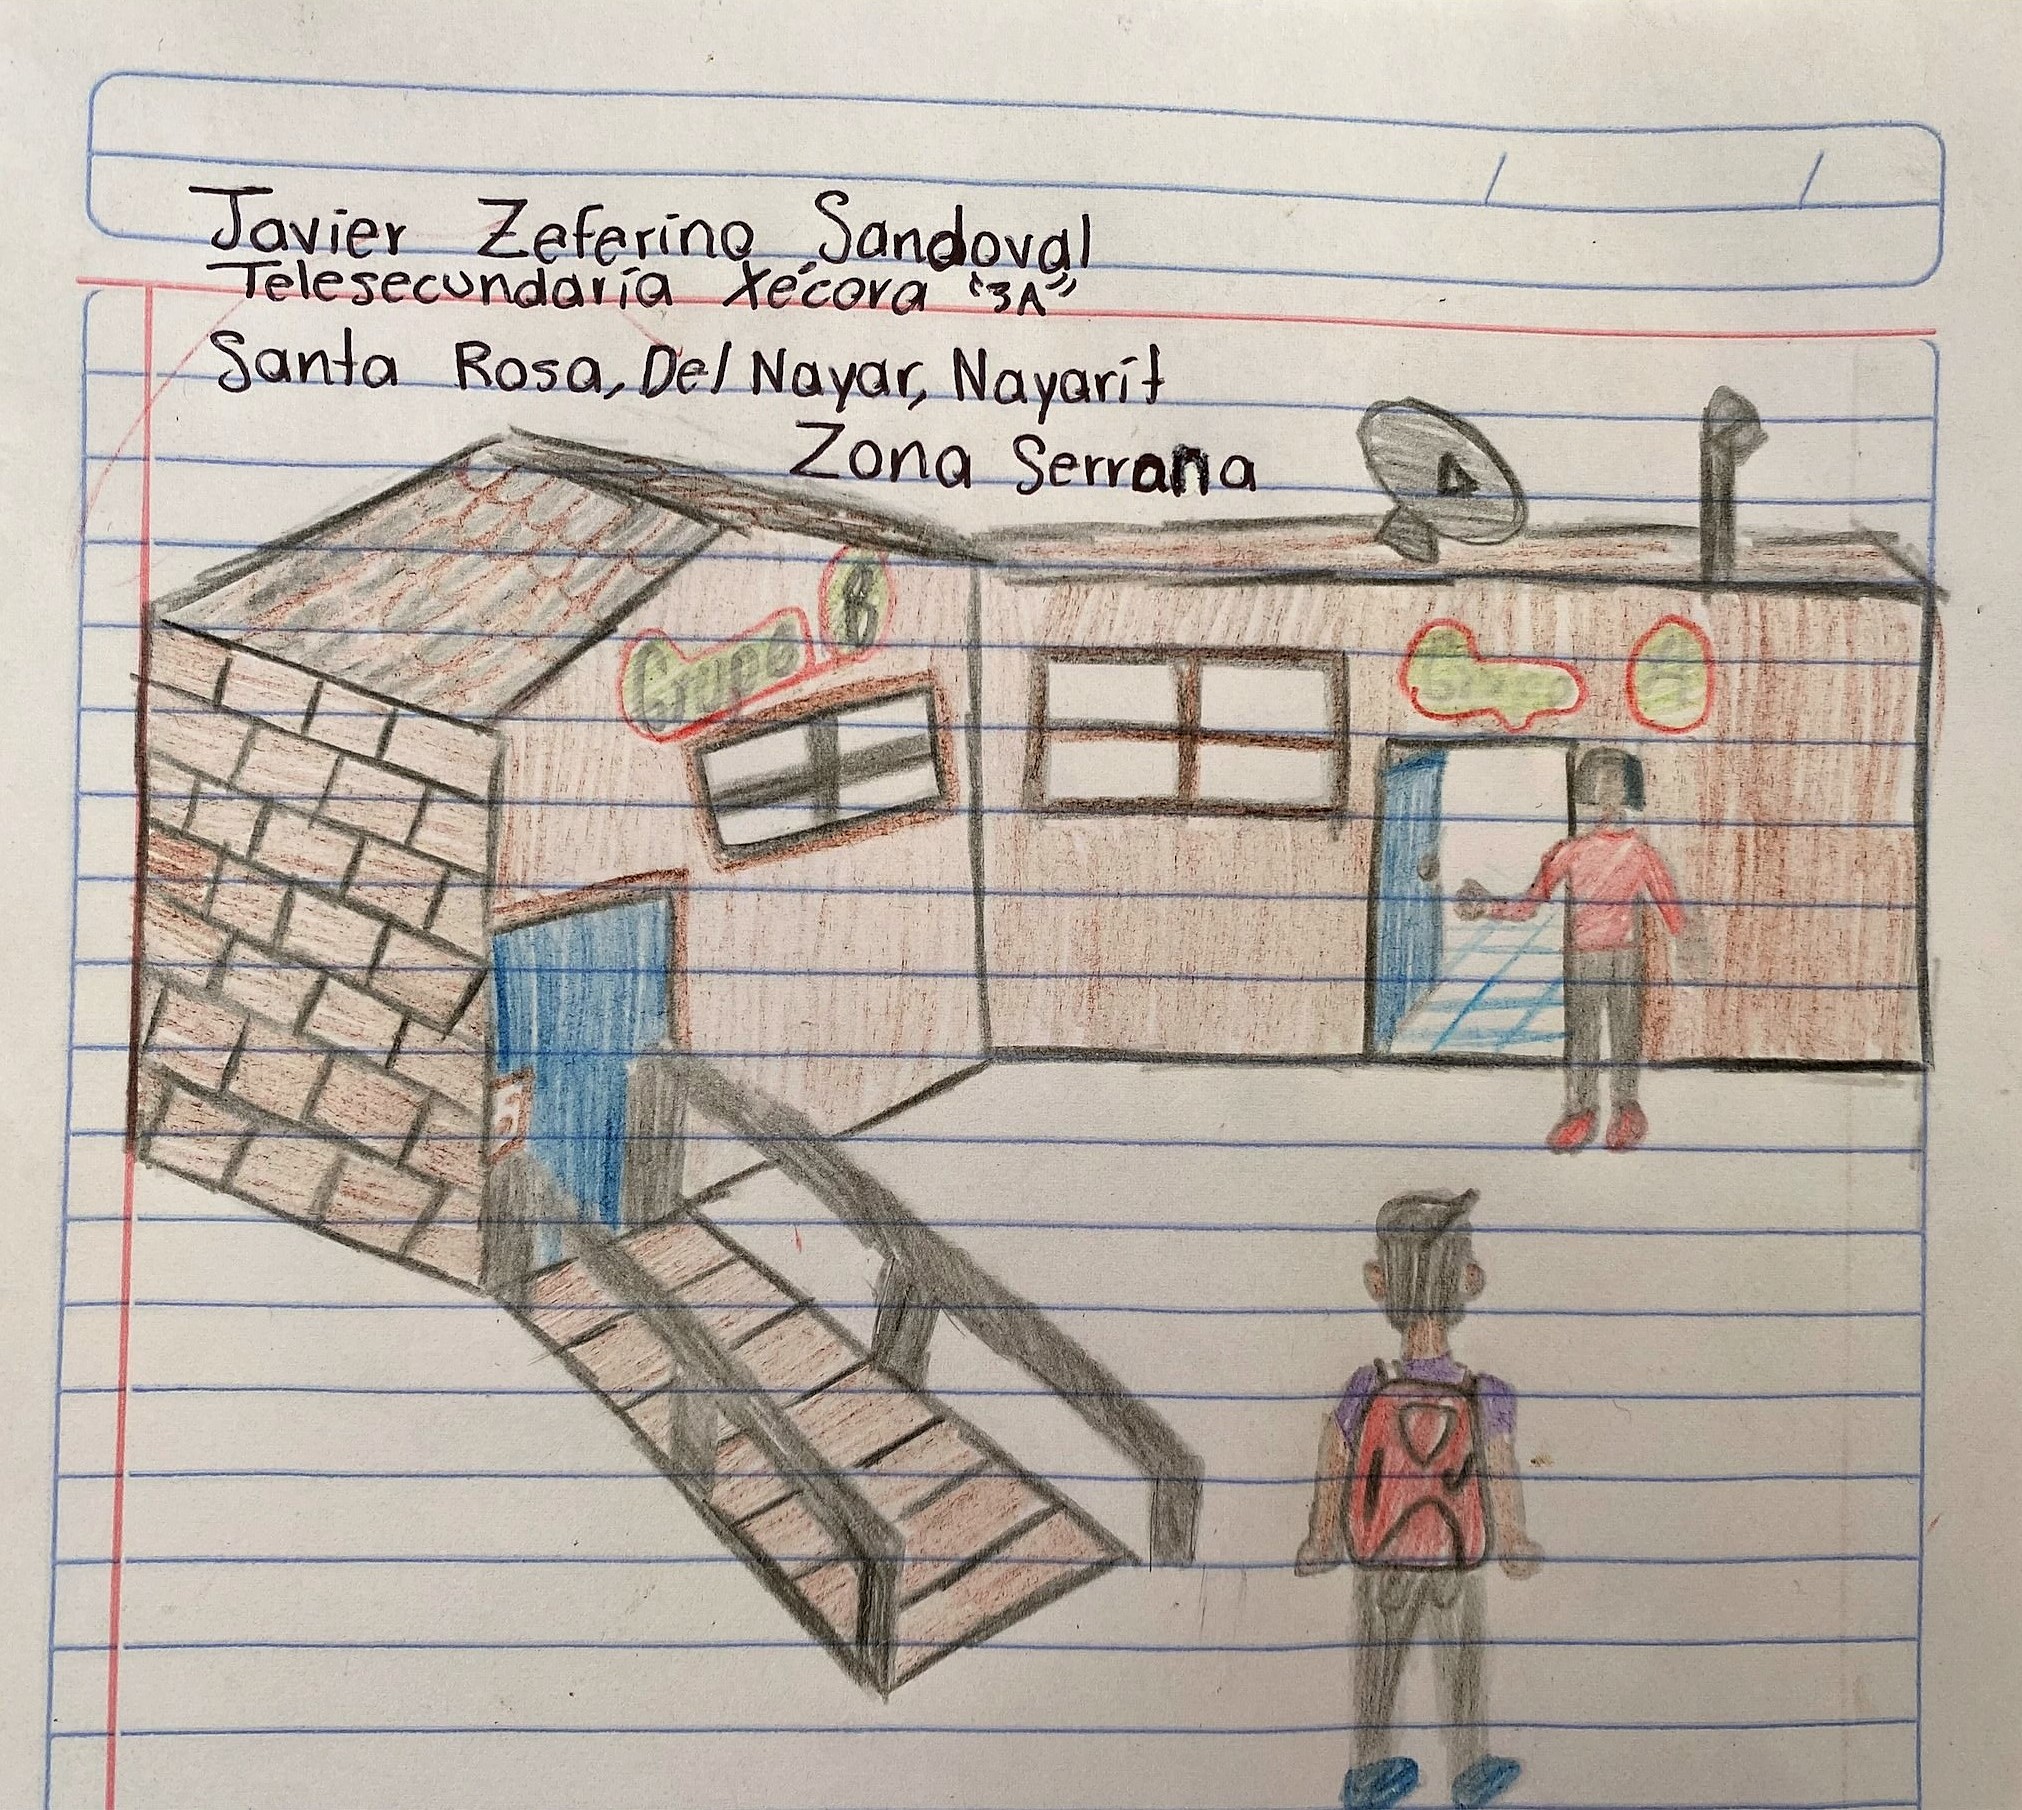 Javier Zeferino Sandoval
Telesecundaria Xécora "3A"
Santa Rosa, Del Nayar, Nayarit
Zona Serrana
B